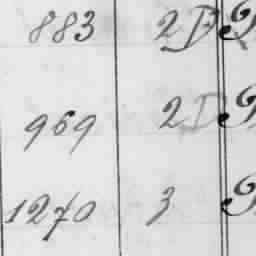 883 2D
969 2D
1270 3